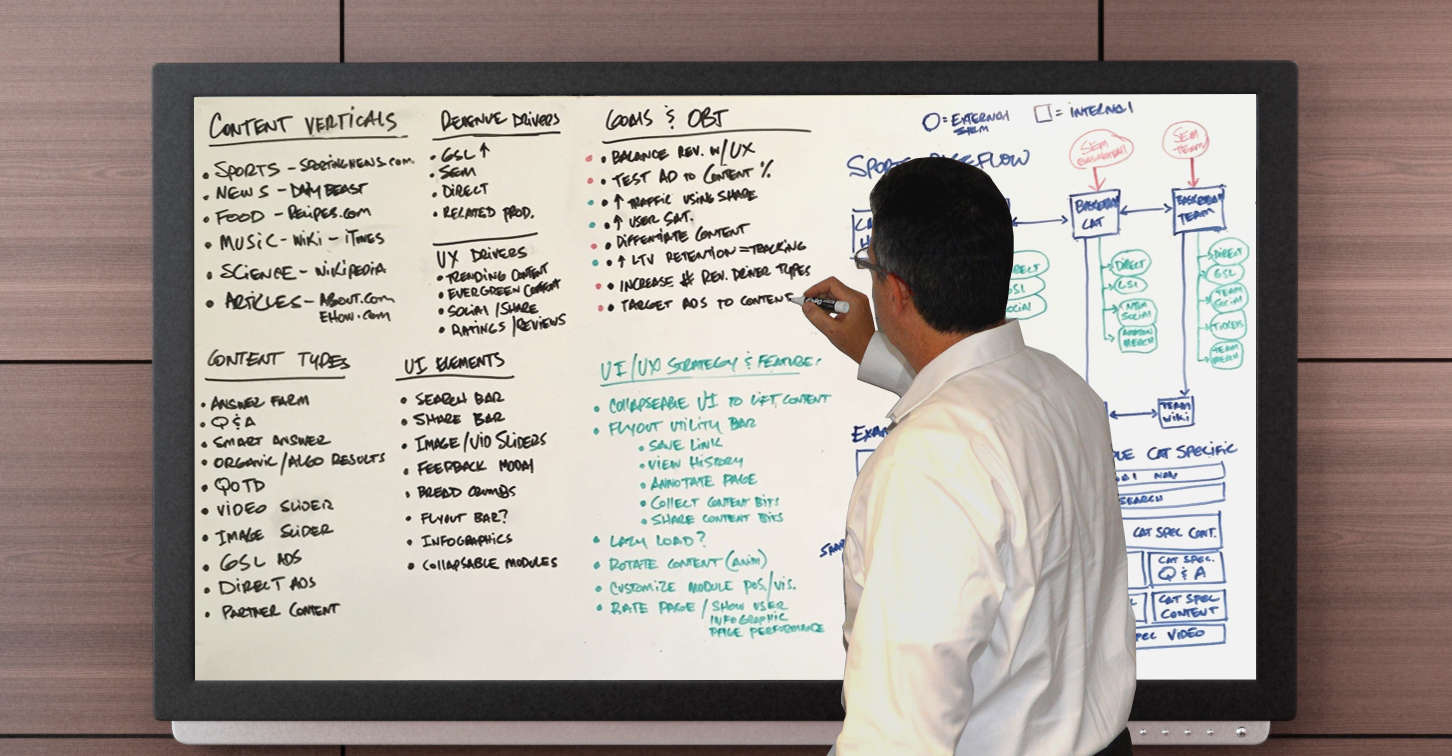 CONTENT VERTICALS
• SPORTS – SPORTINGNEWS.COM
• NEWS – DAILY BEAST
• FOOD – RECIPES.COM
• MUSIC – WIKI – ITUNES
• SCIENCE – WIKIPEDIA
• ARTICLES – ABOUT.COM
EHOW.COM
REVENUE DRIVERS
• GSL ↑
• SEM
• DIRECT
• RELATED PROD.
UX DRIVERS
• TRENDING CONTENT
• EVERGREEN CONTENT
• SOCIAL/SHARE
• RATINGS/REVIEWS
GOALS & OBT
• BALANCE REV. W/ UX
• TEST AD TO CONTENT %
• ↑ TRAFFIC USING SHARE
• ↑ USER SAT.
• DIFFENTIATE CONTENT
• ↑ LTV RETENTION = TRACKING
• INCREASE # REV. DRIVER TYPES
• TARGET ADS TO CONTENT
CONTENT TYPES
• ANSWER FARM
• Q & A
• SMART ANSWER
• ORGANIC/ALGO RESULTS
• QOTD
• VIDEO SLIDER
• IMAGE SLIDER
• GSL ADS
• DIRECT ADS
• PARTNER CONTENT
UI ELEMENTS
• SEARCH BAR
• SHARE BAR
• IMAGE/VID SLIDERS
• FEEDBACK MODAL
• BREAD CRUMBS
• FLYOUT BAR?
• INFOGRAPHICS
• COLLAPSABLE MODULES
UI/UX STRATEGY & FEATURE
• COLLAPSEABLE UI TO LIFT CONTENT
• FLYOUT UTILITY BAR
• SAVE LINK
• VIEW HISTORY
• ANNOTATE PAGE
• COLLECT CONTENT BITS
• SHARE CONTENT BITS
• LAZY LOAD?
• ROTATE CONTENT (ANIM)
• CUSTOMIZE MODULE POS./VIS.
• RATE PAGE / SHOW USER
INFOGRAPHIC
PAGE PERFORMANCE
O = EXTERNAL
□ = INTERNAL
SPORTS PAGE FLOW
SEM
SEM
TEAM
BASKETBALL
CAT
BASKETBALL
TEAM
DIRECT
GSL
SOCIAL
DIRECT
GSL
TEAM
SOCIAL
MERCH
DIRECT
GSL
TEAM
SOCIAL
TICKETS
TEAM
MERCH
TEAM
WIKI
EXA
CAT SPECIFIC
NAV
SEARCH
CAT SPEC CONT.
CAT SPEC.
Q & A
CAT SPEC
CONTENT
SPEC VIDEO